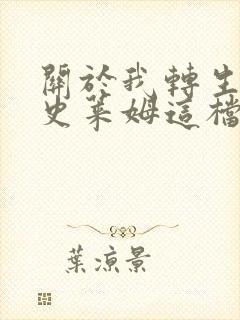 關於我轉生
史萊姆這檔
葉涼景